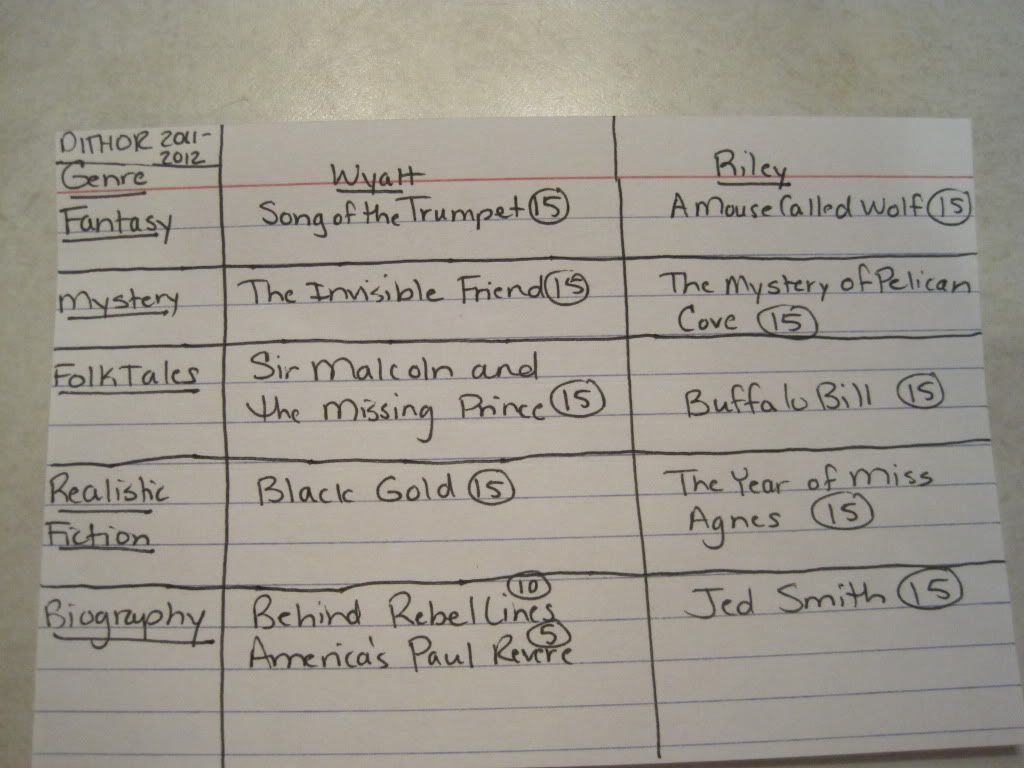 DITHOR 2011-
2012
Genre
Wyatt
Riley
Fantasy
Song of the Trumpet 15
A Mouse Called Wolf 15
Mystery
The Invisible Friend 15
The Mystery of Pelican
Cove 15
Folk Tales
Sir Malcoln and
the Missing Prince 15
Buffalo Bill 15
Realistic
Fiction
Black Gold 15
The Year of Miss
Agnes 15
Biography
Behind Rebel Lines 10
America's Paul Revere 5
Jed Smith 15